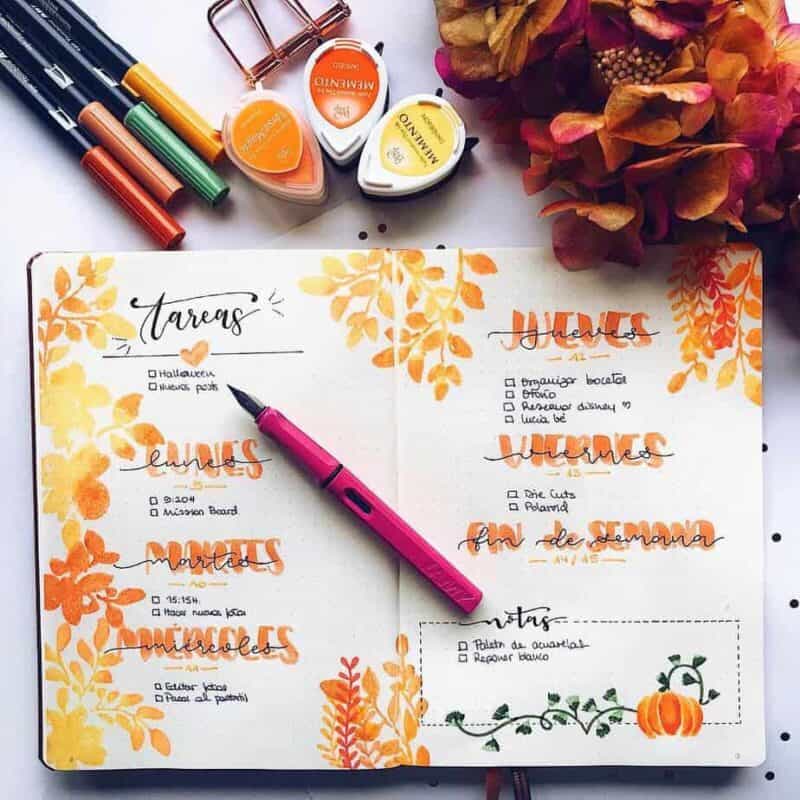 tareas
Halloween
Nuevos posts
LUNES
lunes
9:20H
Mission Board
MARTES
martes
10
15:15H
Hacer nuevas fotos
MIÉRCOLES
miércoles
11
Editar fotos
Pasar al portátil
JUEVES
jueves
12
Organizar bocetos
Otoño
Reservar disney ♡
Lucía bé
VIERNES
viernes
13
Die Cuts
Polaroid
FIN de SEMANA
fin de semana
14/15
notas
Paleta de acuarelas
Reponer blanco
MEMENTO
MEMENTO
DANDELION
LAMY